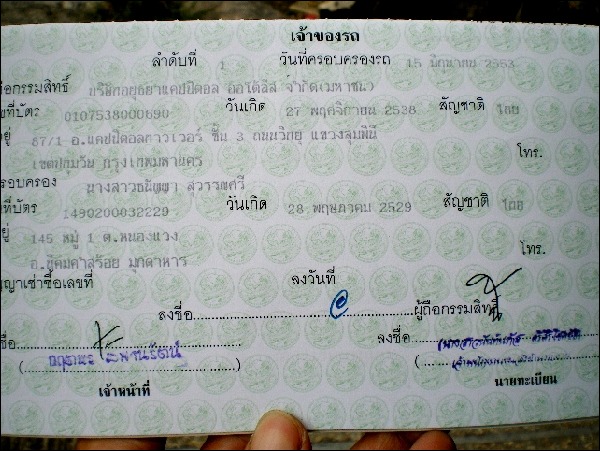 เจ้าของรถ
ลำดับที่ 1 วันที่ครอบครองรถ 15 มิถุนายน 2553
ถือกรรมสิทธิ์ บริษัทอยุธยาแคปปิตอล ออโต้ลีส จำกัด(มหาชน)
เลขที่บัตร 0107538000690 วันเกิด 27 พฤศจิกายน 2538 สัญชาติ ไทย
อยู่ 87/1 อ.แคปปิตอลทาวเวอร์ ชั้น 3 ถนนวิทยุ แขวงลุมพินี
เขตปทุมวัน กรุงเทพมหานคร โทร.
ครอบครอง นางสาวธนิษฐา สุวรรณศรี
ที่บัตร 1490200032229 วันเกิด 28 พฤษภาคม 2529 สัญชาติ ไทย
อยู่ 145 หมู่ 1 ต.หนองแวง โทร.
อ.นิคมคำสร้อย มุกดาหาร
ญญาเช่าซื้อเลขที่ ลงวันที่
ลงชื่อ ผู้ถือกรรมสิทธิ์
ชื่อ ลงชื่อ
( ) ( )
เจ้าหน้าที่ นายทะเบียน